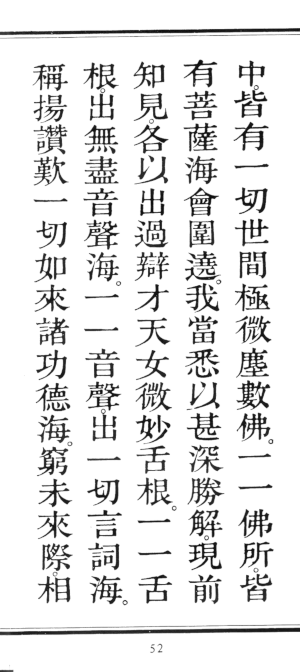 中。皆有一切世間極微塵數佛。一一佛所。皆
有菩薩海會圍遶。我當悉以甚深勝解。現前
知見。各以出過辯才天女微妙舌根。一一舌
根。出無盡音聲海。一一音聲。出一切言詞海。
稱揚讚歎一切如來諸功德海。窮未來際。相
52